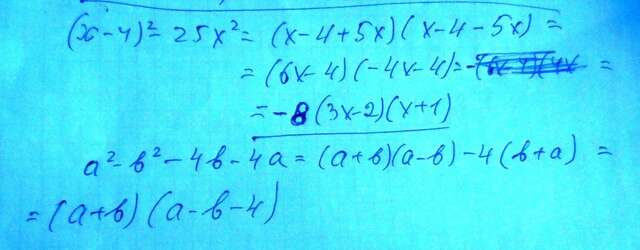 (x-4)² = 25x² = (x-4+5x)(x-4-5x) =
= (6x-4)(-4x-4) = =
= -8(3x-2)(x+1)
a²-b²-4b-4a = (a+b)(a-b)-4(b+a) =
= (a+b)(a-b-4)